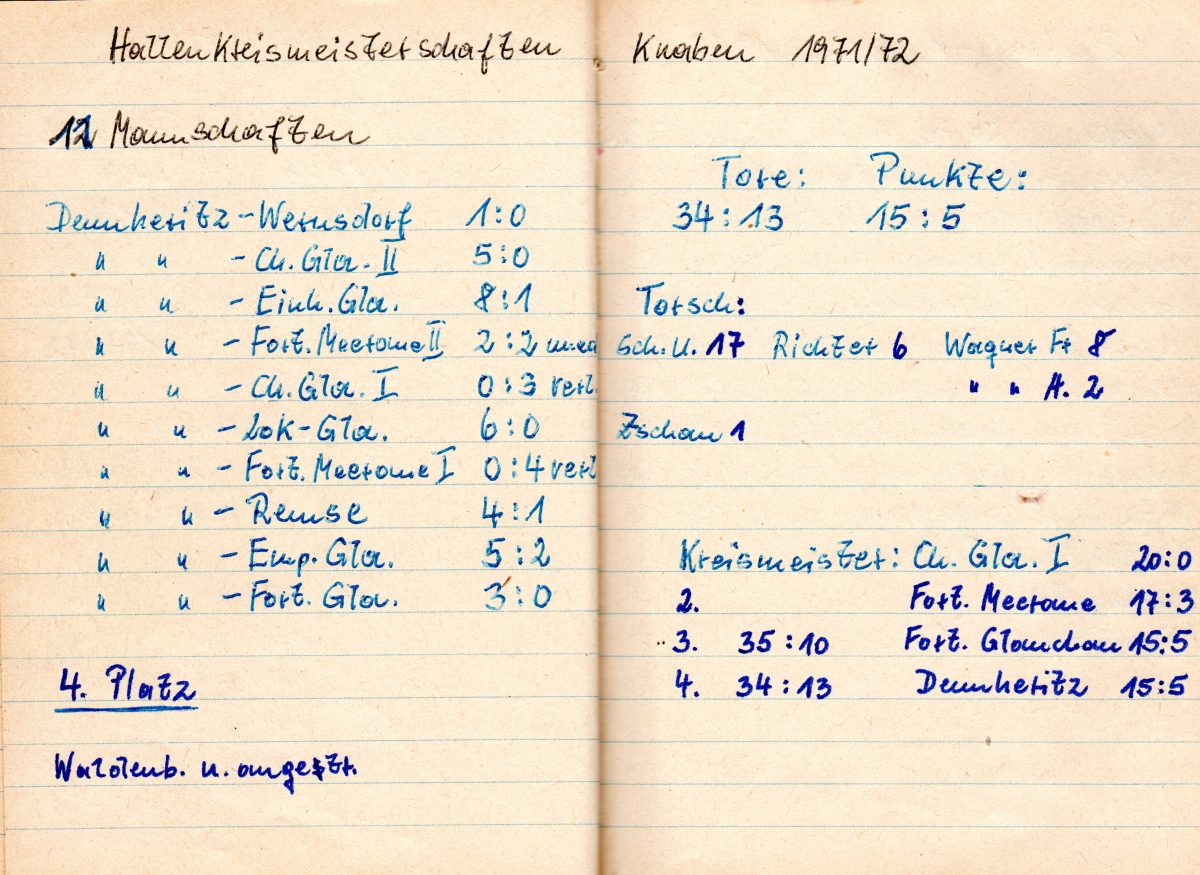 Hallenkreismeisterschaften Knaben 1971/72
12 Mannschaften
Tore: Punkte:
34:13 15:5
Dennheritz - Wernsdorf 1:0
" " - Ch. Gla. II 5:0
" " - Einh. Gla. 8:1
" " - Fort. Meerane II 2:2
" " - Ch. Gla. I 0:3 verl.
" " - Lok-Gla. 6:0
" " - Fort. Meerane I 0:4 verl
" " - Remse 4:1
" " - Emp. Gla. 5:2
" " - Fort. Gla. 3:0
4. Platz
Waldenb. n. angetr.
Torsch:
Sch. U. 17 Richter 6 Wagner Fr 8
" " H. 2
Zschau 1
Kreismeister: Ch. Gla. I 20:0
2. Fort. Meerane 17:3
3. 35:10 Fort. Glauchau 15:5
4. 34:13 Dennheritz 15:5